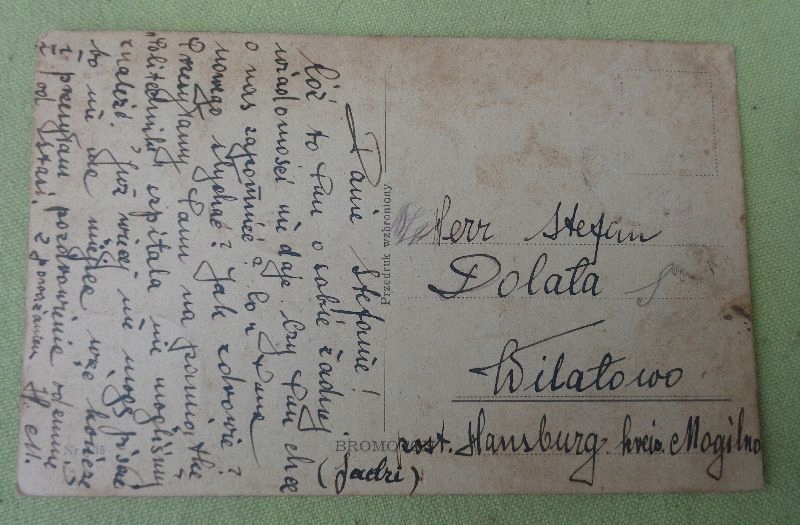 Panie Stefanie!
Cóż to Pan o sobie żadnej
wiadomości nie daje. Czy Pan chce
o nas zapomnieć? Co u Pana
nowego słychać? Jak zdrowie?
Przesyłamy Panu na pamiątkę
szpitala nie mogliśmy
znaleźć. Już więcej nie mogę pisać
bo nie ma miejsca więc kończę
i przesyłam pozdrowienie
i od z poważaniem H. M.
Przedruk wzbroniony
Herr Stefan
Dolata
Wilatowo
post. Hansburg kreis. Mogilno
(Jadzi)